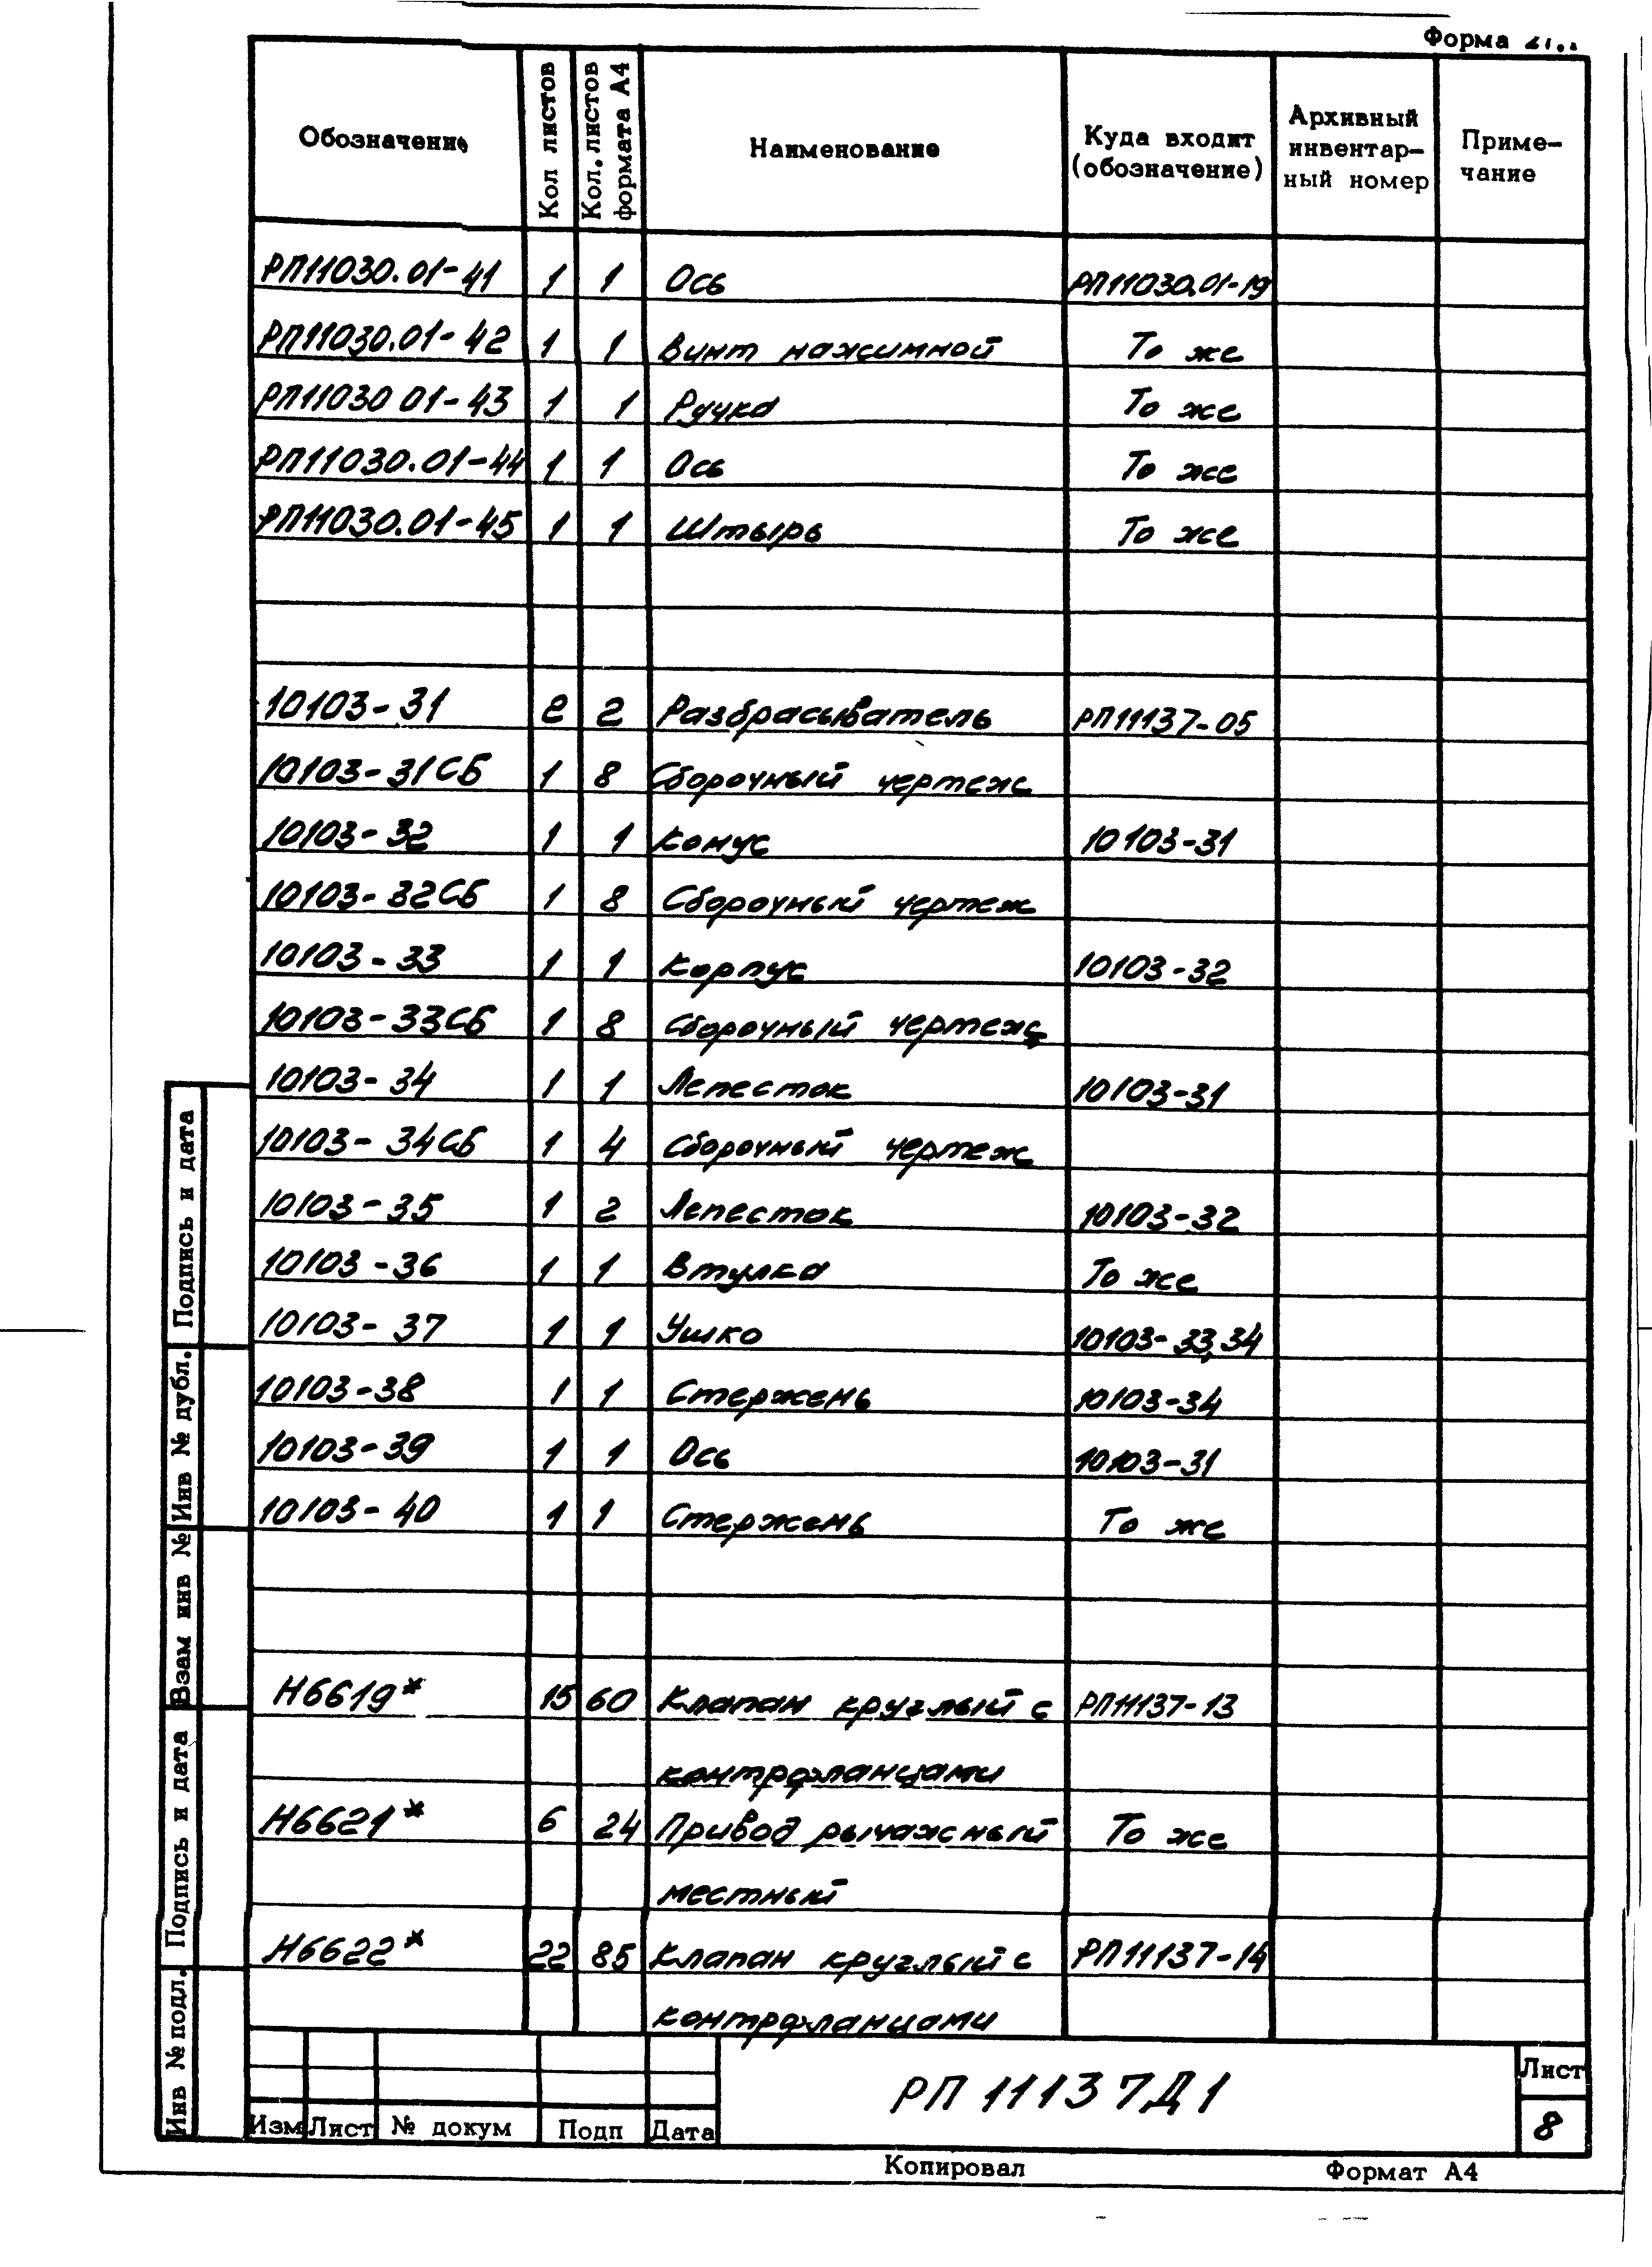 Форма
Обозначение
Кол листов
Кол. листов формата А4
Наименование
Куда входит (обозначение)
Архивный инвентар-ный номер
Приме-чание
РП11030.01-41 1 1 Ось РП11030.01-19
РП11030.01-42 1 1 Винт нажимной То же
РП11030 01-43 1 1 Ручка То же
РП11030.01-44 1 1 Ось То же
РП11030.01-45 1 1 Штырь То же
10103-31 2 2 Разбрасыватель РП11137-05
10103-31СБ 1 8 Сборочный чертеж
10103-32 1 1 Конус 10103-31
10103-32СБ 1 8 Сборочный чертеж
10103-33 1 1 Корпус 10103-32
10103-33СБ 1 8 Сборочный чертеж
10103-34 1 1 Лепесток 10103-31
10103-34СБ 1 4 Сборочный чертеж
10103-35 1 2 Лепесток 10103-32
10103-36 1 1 Втулка То же
10103-37 1 1 Ушко 10103-33,34
10103-38 1 1 Стержень 10103-34
10103-39 1 1 Ось 10103-31
10103-40 1 1 Стержень То же
Н6619* 15 60 Клапан круглый с РП11137-13
контрфланцами
Н6621* 6 24 Привод рычажный То же
местный
Н6622* 22 85 Клапан круглый с РП11137-14
контрфланцами
Подпись и дата
Инв № дубл.
Взам инв №
Подпись и дата
Инв № подл.
Изм Лист № докум Подп Дата
РП 11137Д1
Лист
8
Копировал
Формат А4